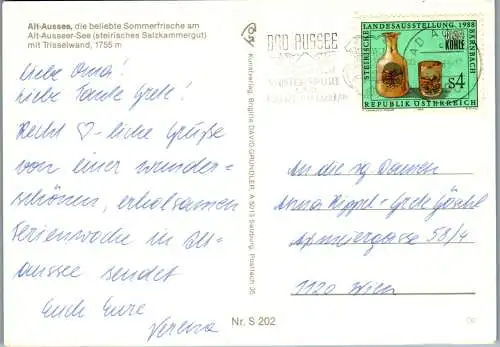 Alt-Aussee, die beliebte Sommerfrische am
Alt-Ausseer-See (steirisches Salzkammergut)
mit Trisselwand, 1755 m
Liebe Oma!
Liebe Tante Grete!
Recht ♡-liche Grüße
von einer wunder-
schönen, erholsamen
Ferienwoche in Alt-
aussee sendet
Euch Eure
Verena
Nr. S 202
Kunstverlag Brigitte DAVID-GRÜNDLER, A 5013 Salzburg, Postfach 35
BAD AUSSEE
STEIRISCHE LANDESAUSSTELLUNG, 1988
BÄRNBACH
GLAS UND KOHLE
S4
REPUBLIK ÖSTERREICH
An die sg Damen
Anna Grete
58/4
1120 Wien